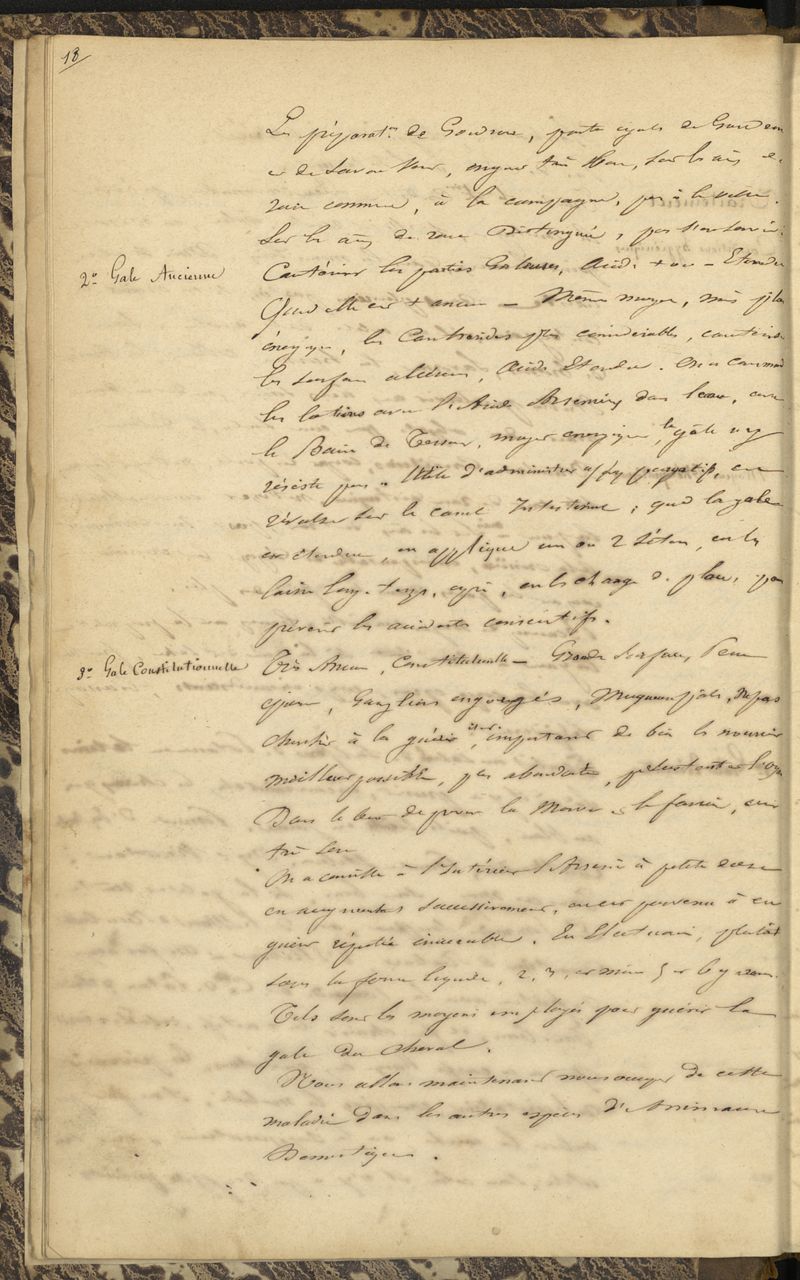 18
Les préparat.ns de Goudron, parties égales de Goudron
et de Savon Vert, moyen très bon, sur les ânes et
race commune, à la campagne, pas à la ville.
Sur les ânes de race Distinguée, pas s'en servir.
2.o Gale Ancienne
Cautériser les parties Galeuses, Acide + ou - Etendu
Quand elle est + ancienne - Même moyen, mais plus
énergique, les Contrendes plus considérables, cautériser
les surfaces ulcérées, Acide Etendu. On a recommandé
les lotions avec l'Acide Arsenieux dans l'eau, avec
le Bain de Tessier, moyen énergique, la gale n'y
résiste pas. Utile d'administrer qq purgatifs, en
révulsion sur le canal Intestinal ; quand la gale
est étendue, on applique un ou 2 Sétons, on les
laisse long-temps, après, on les change de place, pour
prévenir les accidents consécutifs.
3.o Gale Constitutionnelle
Très Ancienne, Constitutionnelle - Grandes Surfaces, Peau
épaisse, Ganglions engorgés, Muqueuses pâles, Ne pas
chercher à la guérir, important de bien les nourrir
meilleur possible, pas abondante, substanter l'orga
Dans le but de prévenir la Morve et le farcin, est
très bon
On a conseillé à l'Intérieur l'Arsenic à petite dose
en augmentant successivement, on est parvenu à en
guérir réputées incurables. En Electuaire, plutôt
sous la forme liquide, 2, 3, et même 5 et 6 grammes.
Tels sont les moyens employés pour guérir la
gale du Cheval.
Nous allons maintenant nous occuper de cette
maladie dans les autres espèces d'Animaux
Domestiques.